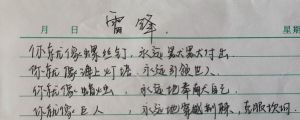 月 日 雷锋.
你就像螺丝钉，永远默默付出
你就像海上灯塔，永远引领世人
你就像蜡烛，永远地奉献自己
你就像巨人，永远地穿越荆棘，克服坎坷